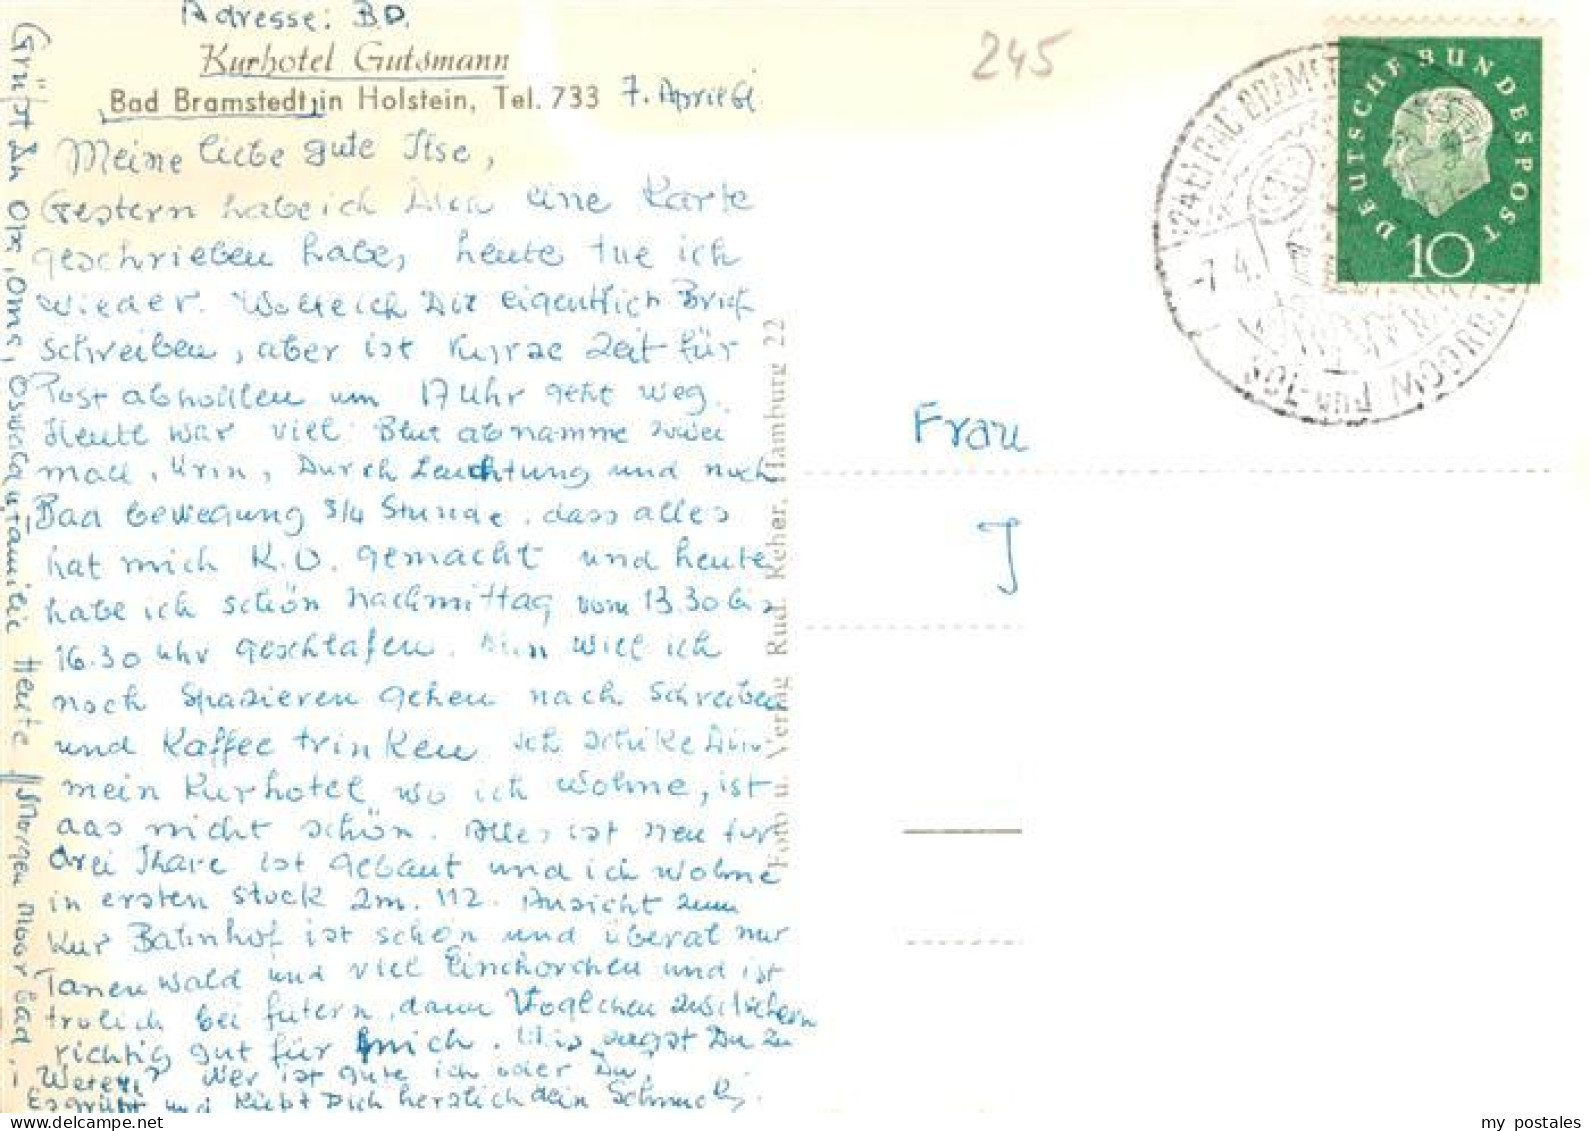 Adresse: B.D.
Kurhotel Gutsmann
Bad Bramstedt, in Holstein, Tel. 733 7. April 61
Meine liebe gute Ilse,
Gestern habe ich Dich eine Karte
geschrieben habe, heute tue ich
wieder. Wollte ich Dir eigentlich Brief
schreiben, aber ist kurzae Zeit für
Post abhollen um 17 Uhr geht weg.
Heute war viel Blut abnamme zwei
mall, Urin, Durch Leuchtung und noch
Bad bewegung 3/4 Stunde, dass alles
hat mich K.O. gemacht und heute
habe ich schön nachmittag vom 13.30 bis
16.30 Uhr geschlafen. Nun will ich
noch Spazieren gehen nach Schreiben
und Kaffee trinken. Ich schike Dir
mein Kurhotel wo ich wohne, ist
das nicht schön. Alles ist neu für
drei Jhare ist gebaut und ich wohne
in ersten Stock Zm. 112. Ansicht zum
Kur Bahnhof ist schön und überal nur
Tanen Wald und viel Einchörchen und ist
frölich bei futern, dann Vöglchen zwitschern
richtig gut für mich. Was sagst Du zu
Weter? Wer ist gute ich oder Du?
Es grüßt und küßt Dich herzlich dein
Grüßt Du Opa, Oma, Familie Heute
Morgen Moor bad.
Foto u. Verlag Rud. Reher, Hamburg 22
245
DEUTSCHE BUNDESPOST
10
(24b) BAD BRAMSTEDT
-7.4.
SOL- und MOORBAD
Frau
J
my postales